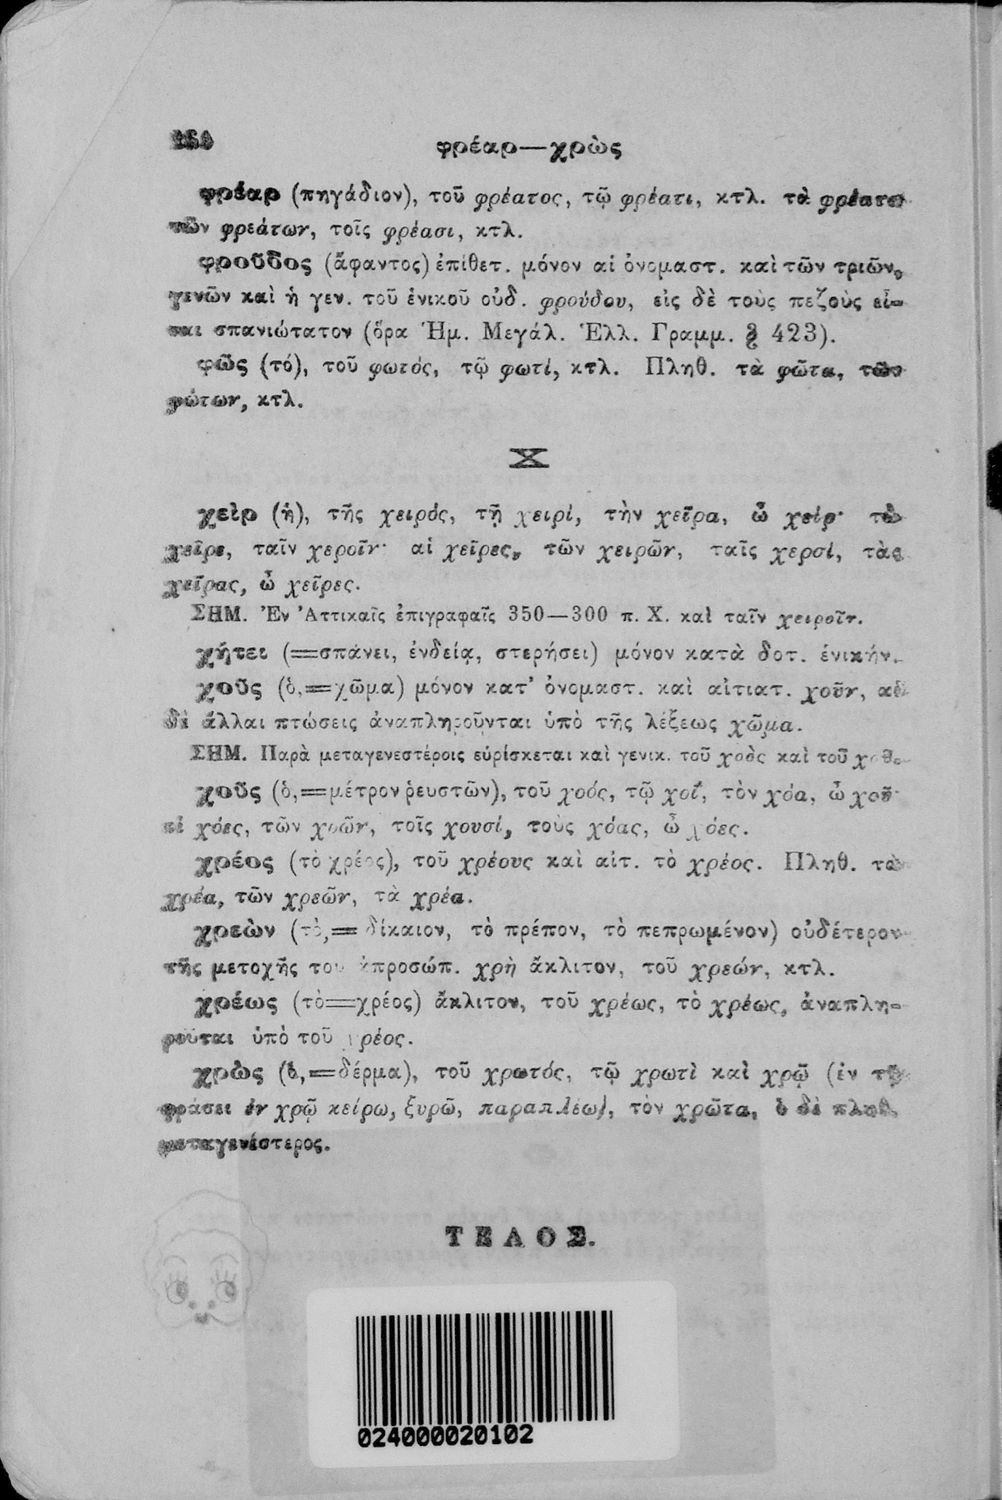 φρέαρ—χρὼς
φρέαρ (πηγάδιον), τοῦ φρέατος, τῷ φρέατι, κτλ. τὰ φρέατα
τῶν φρεάτων, τοῖς φρέασι, κτλ.
φροῦδος (ἄφαντος) ἐπίθετ. μόνον αἱ ὀνομαστ. καὶ τῶν τριῶν
γενῶν καὶ ἡ γεν. τοῦ ἑνικοῦ οὐδ. φρούδου, εἰς δὲ τοὺς πεζοὺς εἶ-
ναι σπανιώτατον (ὅρα Ἡμ. Μεγάλ. Ἑλλ. Γραμμ. § 423).
φῶς (τό), τοῦ φωτός, τῷ φωτί, κτλ. Πληθ. τὰ φῶτα, τῶν
φώτων, κτλ.
Χ
χεὶρ (ἡ), τῆς χειρός, τῇ χειρί, τὴν χεῖρα, ὦ χείρ· τὼ
χεῖρε, ταῖν χεροῖν· αἱ χεῖρες, τῶν χειρῶν, ταῖς χερσί, τὰς
χεῖρας, ὦ χεῖρες.
ΣΗΜ. Ἐν Ἀττικαῖς ἐπιγραφαῖς 350—300 π. Χ. καὶ ταῖν χειροῖν.
χήτει (=σπάνει, ἐνδείᾳ, στερήσει) μόνον κατὰ δοτ. ἑνικήν.
χοῦς (ὁ,=χῶμα) μόνον κατ’ ὀνομαστ. καὶ αἰτιατ. χοῦν, αἱ
δὲ ἄλλαι πτώσεις ἀναπληροῦνται ὑπὸ τῆς λέξεως χῶμα.
ΣΗΜ. Παρὰ μεταγενεστέροις εὑρίσκεται καὶ γενικ. τοῦ χοὸς καὶ τοῦ
χοῦς (ὁ,=μέτρον ῥευστῶν), τοῦ χοός, τῷ χοΐ, τὸν χόα, ὦ χοῦ·
οἱ χόες, τῶν χοῶν, τοῖς χουσί, τοὺς χόας, ὦ χόες.
χρέος (τὸ χρέος), τοῦ χρέους καὶ αἰτ. τὸ χρέος. Πληθ. τὰ
χρέα, τῶν χρεῶν, τὰ χρέα.
χρεὼν (τὸ,= δίκαιον, τὸ πρέπον, τὸ πεπρωμένον) οὐδέτερον
τῆς μετοχῆς τοῦ ἀπροσώπ. χρὴ ἄκλιτον, τοῦ χρεών, κτλ.
χρέως (τὸ=χρέος) ἄκλιτον, τοῦ χρέως, τὸ χρέως, ἀναπλη-
ροῦται ὑπὸ τοῦ χρέος.
χρὼς (ὁ,=δέρμα), τοῦ χρωτός, τῷ χρωτὶ καὶ χρῷ (ἐν τῇ
φράσει ἐν χρῷ κείρω, ξυρῶ, παραπλέω), τὸν χρῶτα, ὁ δὲ πληθ.
μεταγενέστερος.
ΤΕΛΟΣ.
024000020102